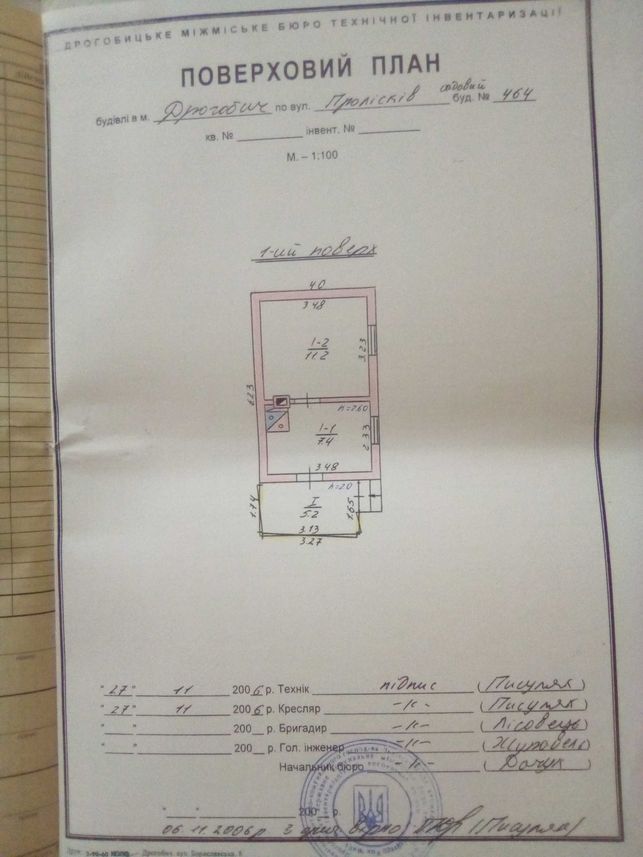 ДРОГОБИЦЬКЕ МІЖМІСЬКЕ БЮРО ТЕХНІЧНОЇ ІНВЕНТАРИЗАЦІЇ
ПОВЕРХОВИЙ ПЛАН
садовий
будівлі в м. Дрогобич по вул. Пролісків буд. № 464
кв. № інвент. №
М. – 1:100
1-ий поверх
4.0
3.48
1-2
11.2
3.23
h=2.60
1-1
7.4
2.33
3.48
h=2.0
I
5.2
1.74
1.65
3.13
3.27
"27" 11 2006 р. Технік підпис (Писуляк)
"27" 11 2006 р. Кресляр –//– (Писуляк)
" " 200 р. Бригадир –//– (Лісовець)
" " 200 р. Гол. інженер –//–
Начальник бюро –//–
" " 200 р.
06.11.2006р З вірно (Писуляк)